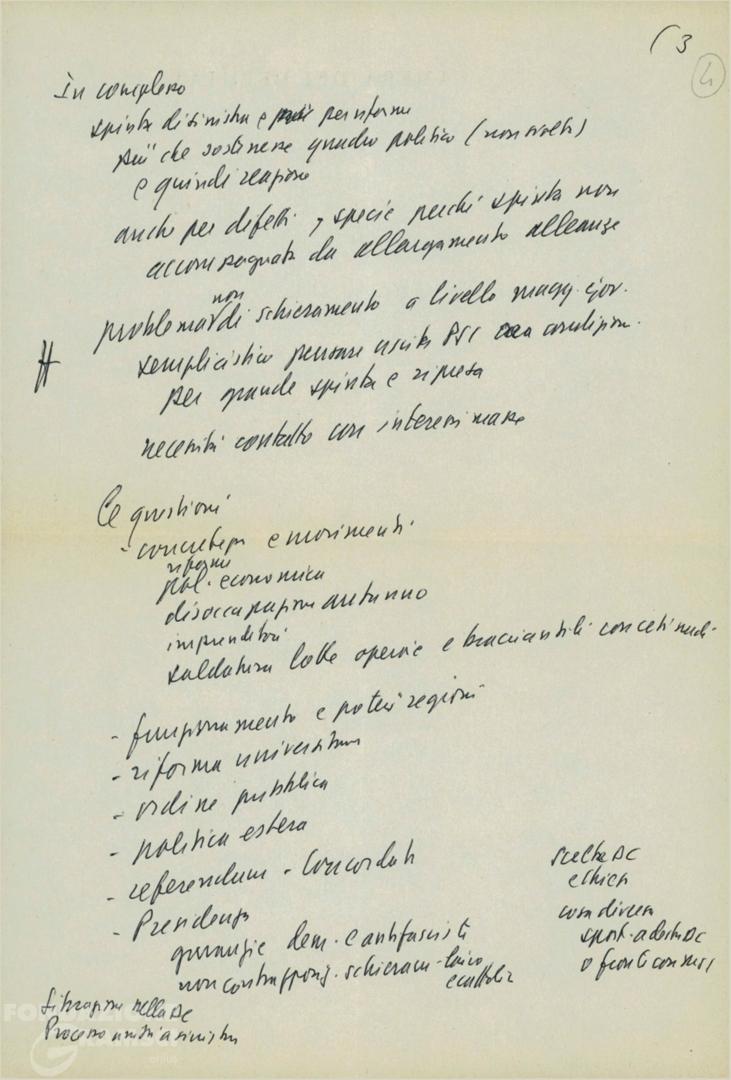 ( 3
4
In complesso
spinta di sinistra e per riforme
più che sostenere quadro politico (non svolta)
e quindi reazione
anche per difetti, specie perché spinta non
accompagnata da allargamento alleanze
problema non di schieramento a livello magg. gov.
semplicistico pensare uscita PSI condizion.
per grande spinta e ripresa
necessità contatto con interessi masse
Le questioni
- concretezza e movimenti
riforme
pol. economica
disoccupazione autunno
imprenditori
saldatura lotte operaie e bracciantili con ceti medi
- funzionamento e poteri regioni
- riforma universitaria
- ordine pubblico
- politica estera
- referendum - Concordato
- Presidenza
garanzie dem. e antifasciste
non contrappos. schieram. laico
e cattolic
scelta DC
e chiesa
cosa diversa
spost. a destra DC
o
Situazione nella DC
Processo unità a sinistra
FONDAZIONE
GRAMSCI